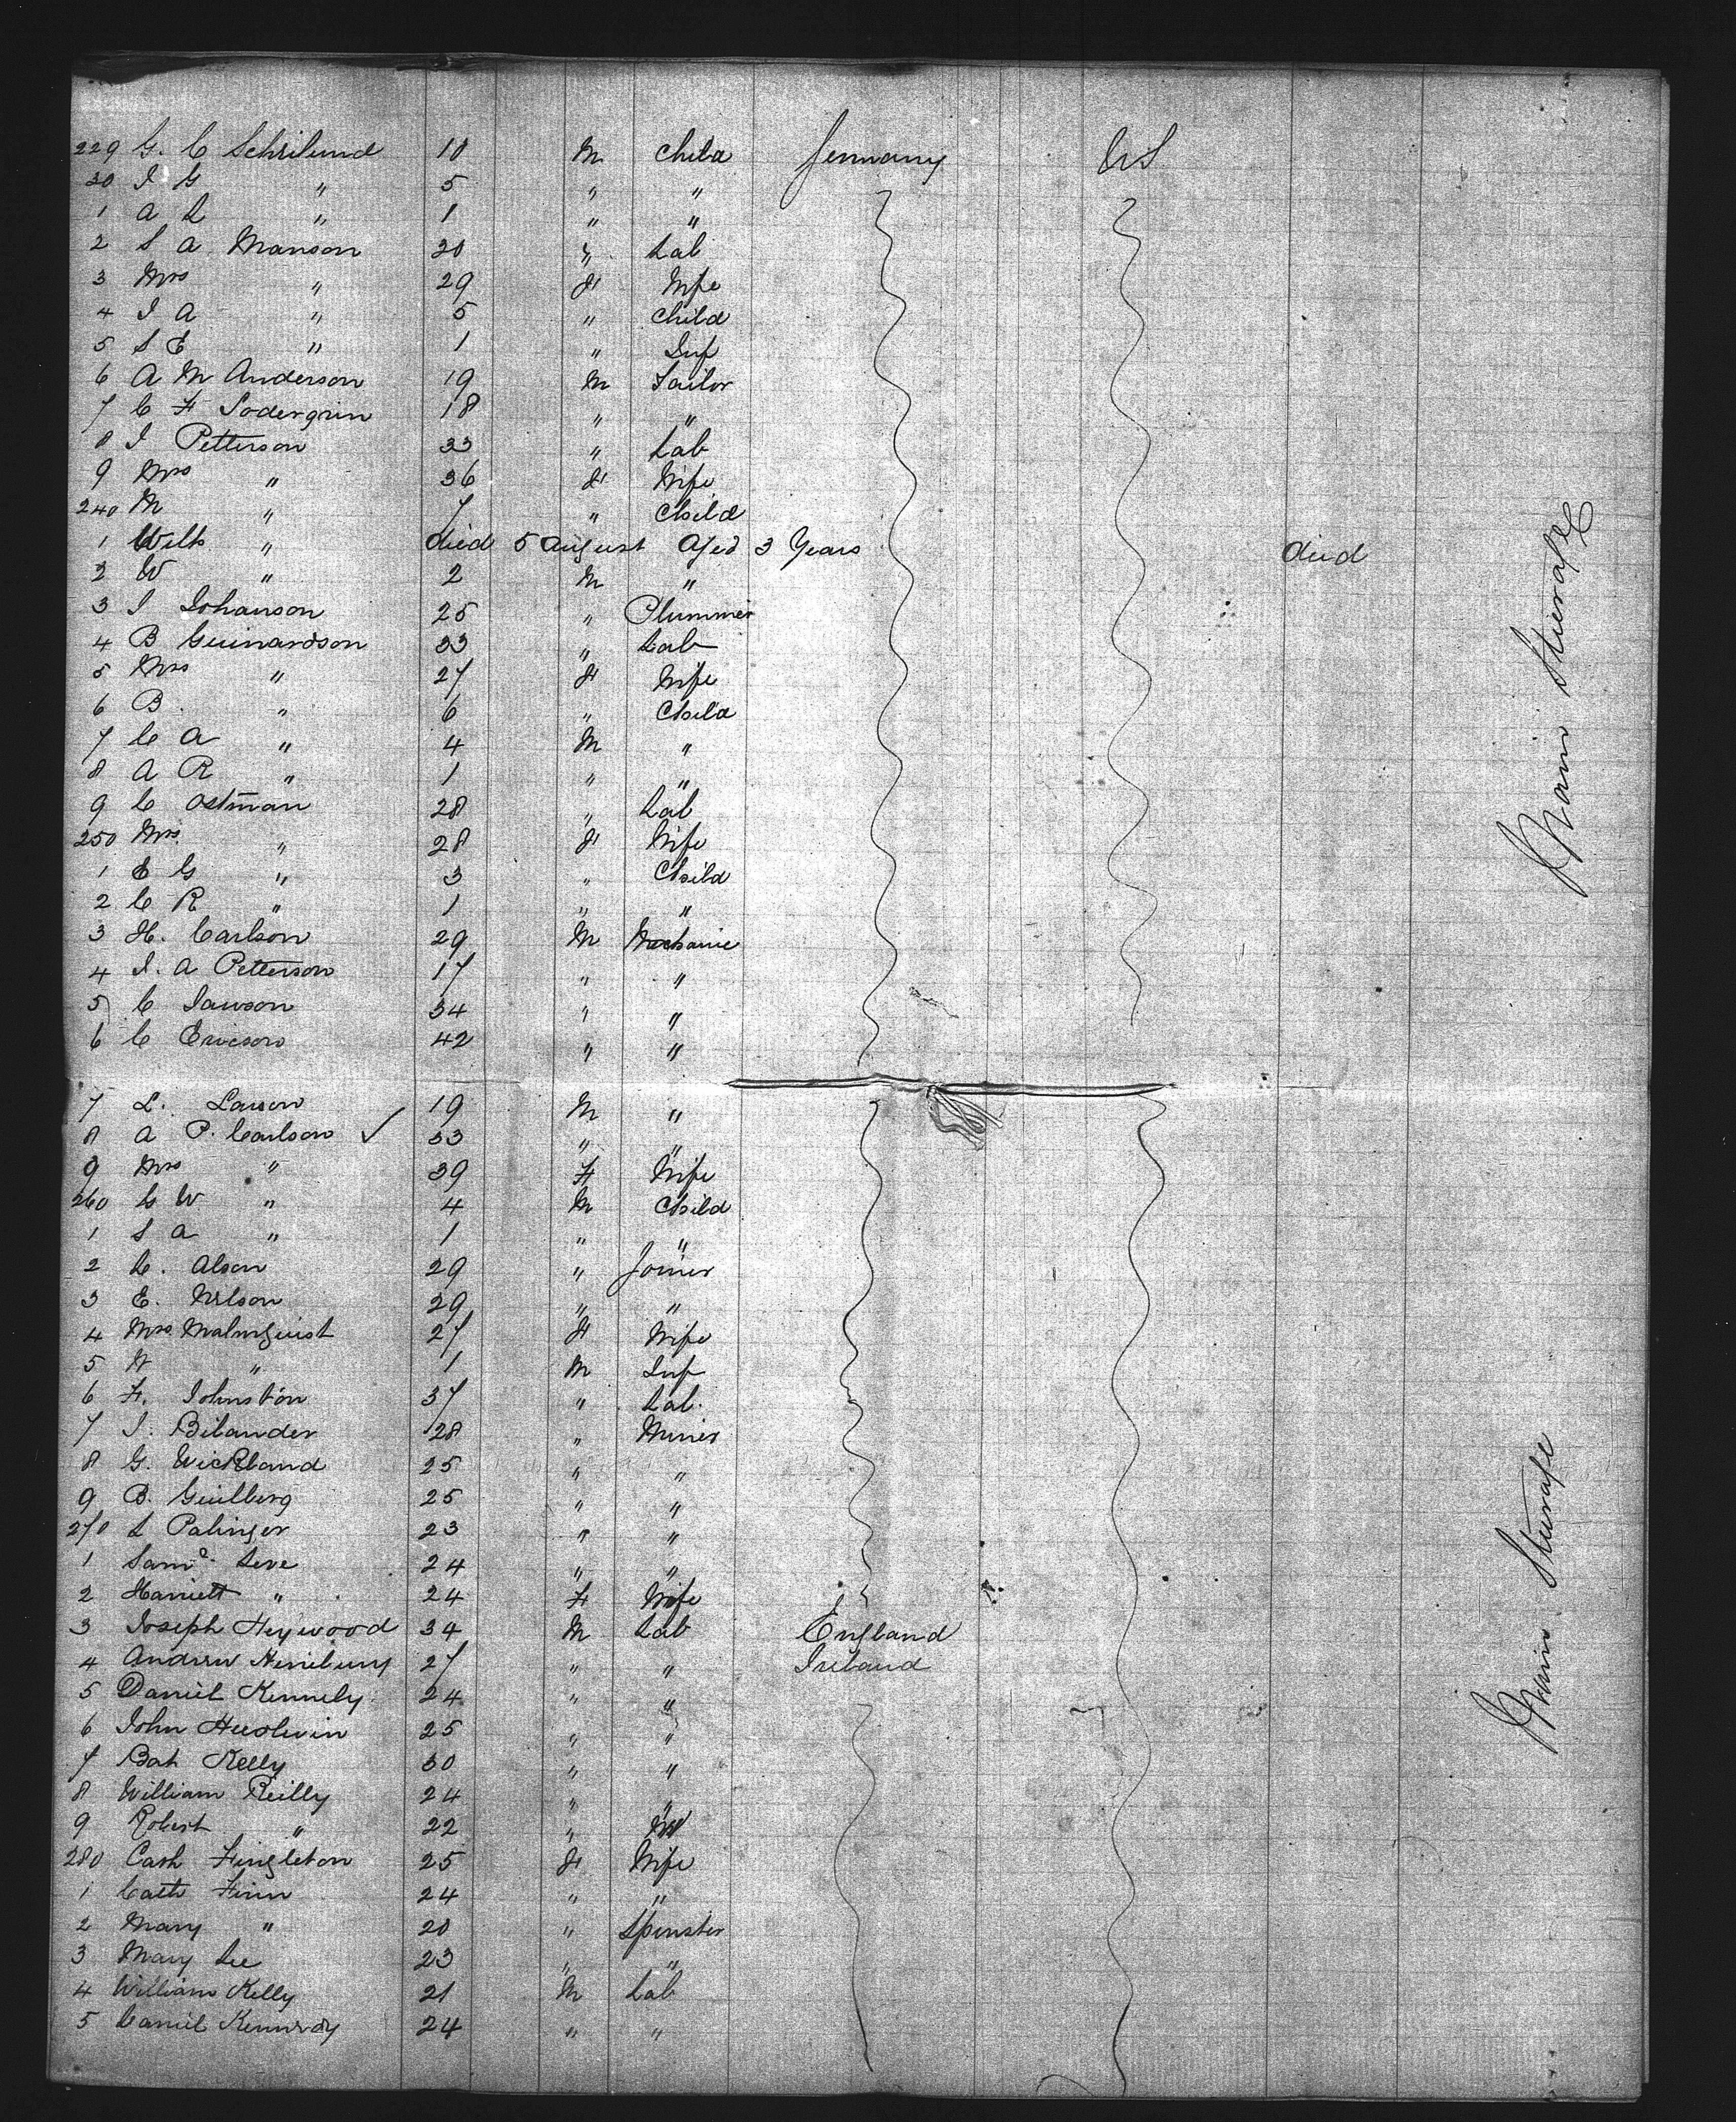 229 G. C Schrilund 10 M Child Germany US
30 I G " 5 " "
1 A L " 1 " "
2 S A Manson 20 " Lab
3 Mrs " 29 F Wife
4 I A " 5 " Child
5 S E " 1 " Inf
6 A M Anderson 19 M Tailor
7 C F Sodergrin 18 " "
8 I Petterson 33 " Lab
9 Mrs " 36 F Wife
240 M " 7 " Child
1 " died 5 August Aged 3 Years died
2 W " 2 M "
3 I Johanson 25 " Plummer
4 B Guinardson 33 " Lab
5 Mrs " 27 F Wife
6 B. " 6 " Child
7 C A " 4 M "
8 A R " 1 " "
9 C Ostman 28 " Lab
250 Mrs. " 28 F Wife
1 E G " 3 " Child
2 C R " 1 " "
3 H. Carlson 29 M Mechanic
4 I. A Petterson 17 " "
5 C Lawson 34 " "
6 C Ericson 42 " "
7 L. Larson 19 M "
8 A P. Carlson ✓ 33 " "
9 Mrs " 39 F Wife
260 G W " 4 M Child
1 S A " 1 " "
2 L. Alson 29 " Joiner
3 E. Nilson 29 " "
4 Mrs Malmquist 27 F Wife
5 N " 1 M Inf
6 F. Johnston 37 " Lab.
7 I. Bilander 28 " Miner
8 G. Wickland 25 " "
9 B. Guilberg 25 " "
270 L Palinger 23 " "
1 Saml. Leve 24 " "
2 Harriett " 24 F Wife
3 Joseph Heywood 34 M Lab England
4 Andrew 27 " " Ireland
5 Daniel Kennely 24 " "
6 John 25 " "
7 Bat Kelly 30 " "
8 William Reilly 24 " "
9 Robert " 22 "
280 Cath Fingleton 25 F Wife
1 Cath Finn 24 " "
2 Mary " 20 " Spinster
3 Mary Lee 23 " "
4 William Kelly 21 M Lab
5 Daniel Kennedy 24 " "
Main Steerage
Main Steerage